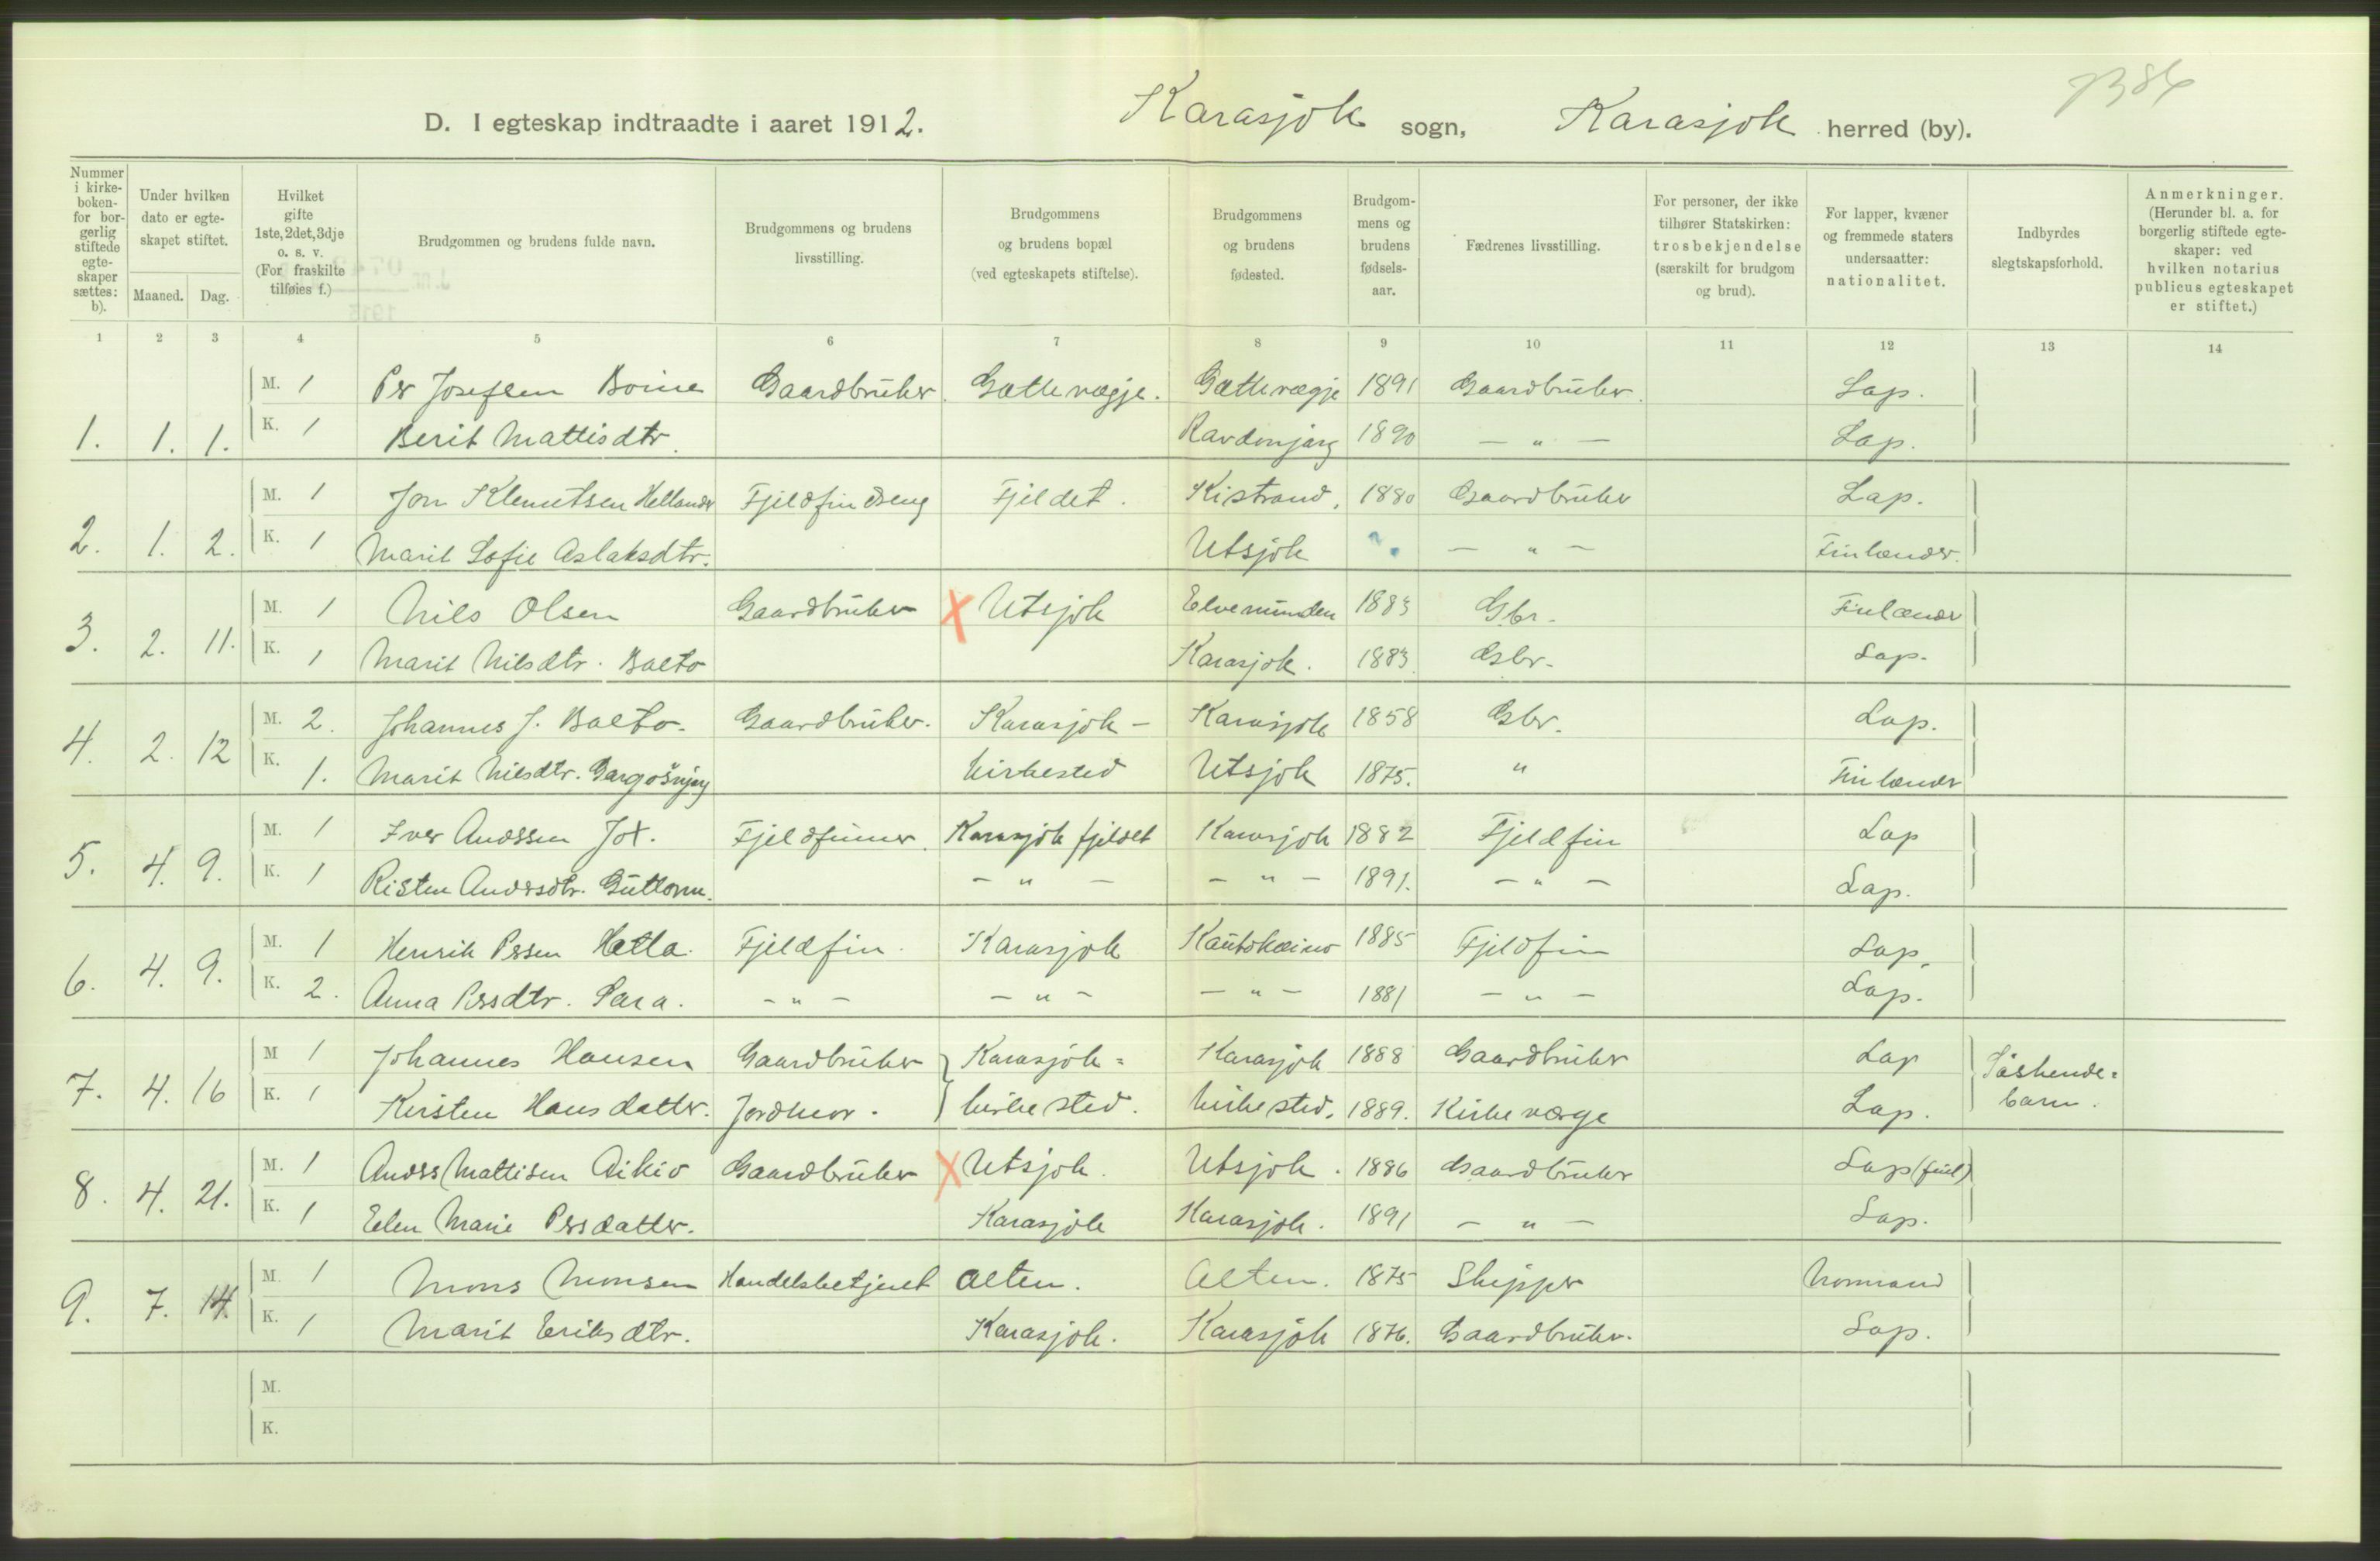 7386
D. I egteskap indtraadte i aaret 1912. Karasjok sogn, Karasjok herred (by).
Nummer i kirke-boken- for bor-gerlig stiftede egte-skaper sættes: b).
Under hvilken dato er egte-skapet stiftet.
Maaned. Dag.
Hvilket gifte 1ste, 2det, 3dje o. s. v. (For fraskilte tilføies f.)
Brudgommen og brudens fulde navn.
Brudgommens og brudens livsstilling.
Brudgommens og brudens bopæl (ved egteskapets stiftelse).
Brudgommens og brudens fødested.
Brudgom-mens og brudens fødsels-aar.
Fædrenes livsstilling.
For personer, der ikke tilhører Statskirken: trosbekjendelse (særskilt for brudgom og brud).
For lapper, kvæner og fremmede staters undersaatter: nationalitet.
Indbyrdes slegtskapsforhold.
Anmerkninger. (Herunder bl. a. for borgerlig stiftede egte-skaper: ved hvilken notarius publicus egteskapet er stiftet.)
1 2 3 4 5 6 7 8 9 10 11 12 13 14
M. 1 Per Josefsen Boine Gaardbruker. Gattevægje. Gattevægje 1891 Gaardbruker. Lap.
1. 1. 1. K. 1 Berit Mattisdtr. Ravdonjarg 1890 — " — Lap.
M. 1 Jon Klemetsen Hellander Fjeldfindreng Fjeldet. Kistrand. 1880 Gaardbruker Lap.
2. 1. 2. K. 1 Marit Sofie Aslaksdtr. Utsjok — " — Finlænder.
M. 1 Nils Olsen Gaardbruker X Utsjok Elvemunden 1883 Gbr. Finlænder
3. 2. 11. K. 1 Marit Nilsdtr. Balto Karasjok. 1883. Gbr. Lap.
M. 2. Johannes J. Balto. Gaardbruker. Karasjok - Karasjok 1858 Gbr. Lap.
4. 2. 12 K. 1. Marit Nilsdtr. kirkested Utsjok 1875. " Finlænder
M. 1 Iver Anderssen Jox. Fjeldfinner. Karasjok fjeldet Karasjok 1882 Fjeldfin Lap
5. 4. 9. K. 1 Risten Andersdtr. Guttorm. — " — — " — 1891. — " — Lap.
M. 1 Henrik Persen Hætta. Fjeldfin. Karasjok Kautokeino 1885 Fjeldfin Lap.
6. 4. 9. K. 2. Anna Persdtr. Sara. — " — — " — — " — 1881 — " — Lap.
M 1 Johannes Hansen Gaardbruker Karasjok= Karasjok 1888 Gaardbruker Lap Søskende=
7. 4. 16 K. 1 Kirsten Hansdatter. Jordmor. kirkested. kirkested. 1889. Kirkeværge Lap. barn.
M. 1 Anders Mattisen Aikio Gaardbruker X Utsjok. Utsjok. 1886 Gaardbruker Lap (finl)
8. 4. 21. K. 1 Elen Marie Persdatter. Karasjok Karasjok. 1891 — " — Lap.
M. 1 Mons Monsen Handelsbetjent Alten. Alten. 1875 Skipper Normand
9. 7. 14. K. 1 Marit Eriksdtr. Karasjok. Karasjok 1876. Gaardbruker. Lap.
M.
K.